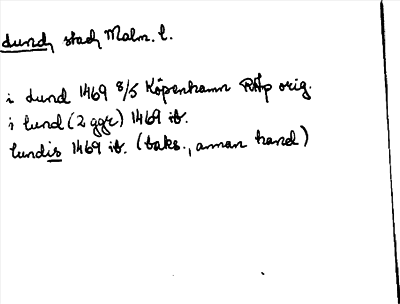 Lund, stad, Malm. l.
i Lund 1469 8/5 Köpenhamn RAp orig.
i lund (2 ggr) 1469 ib.
lundis 1469 ib. (baks., annan hand)